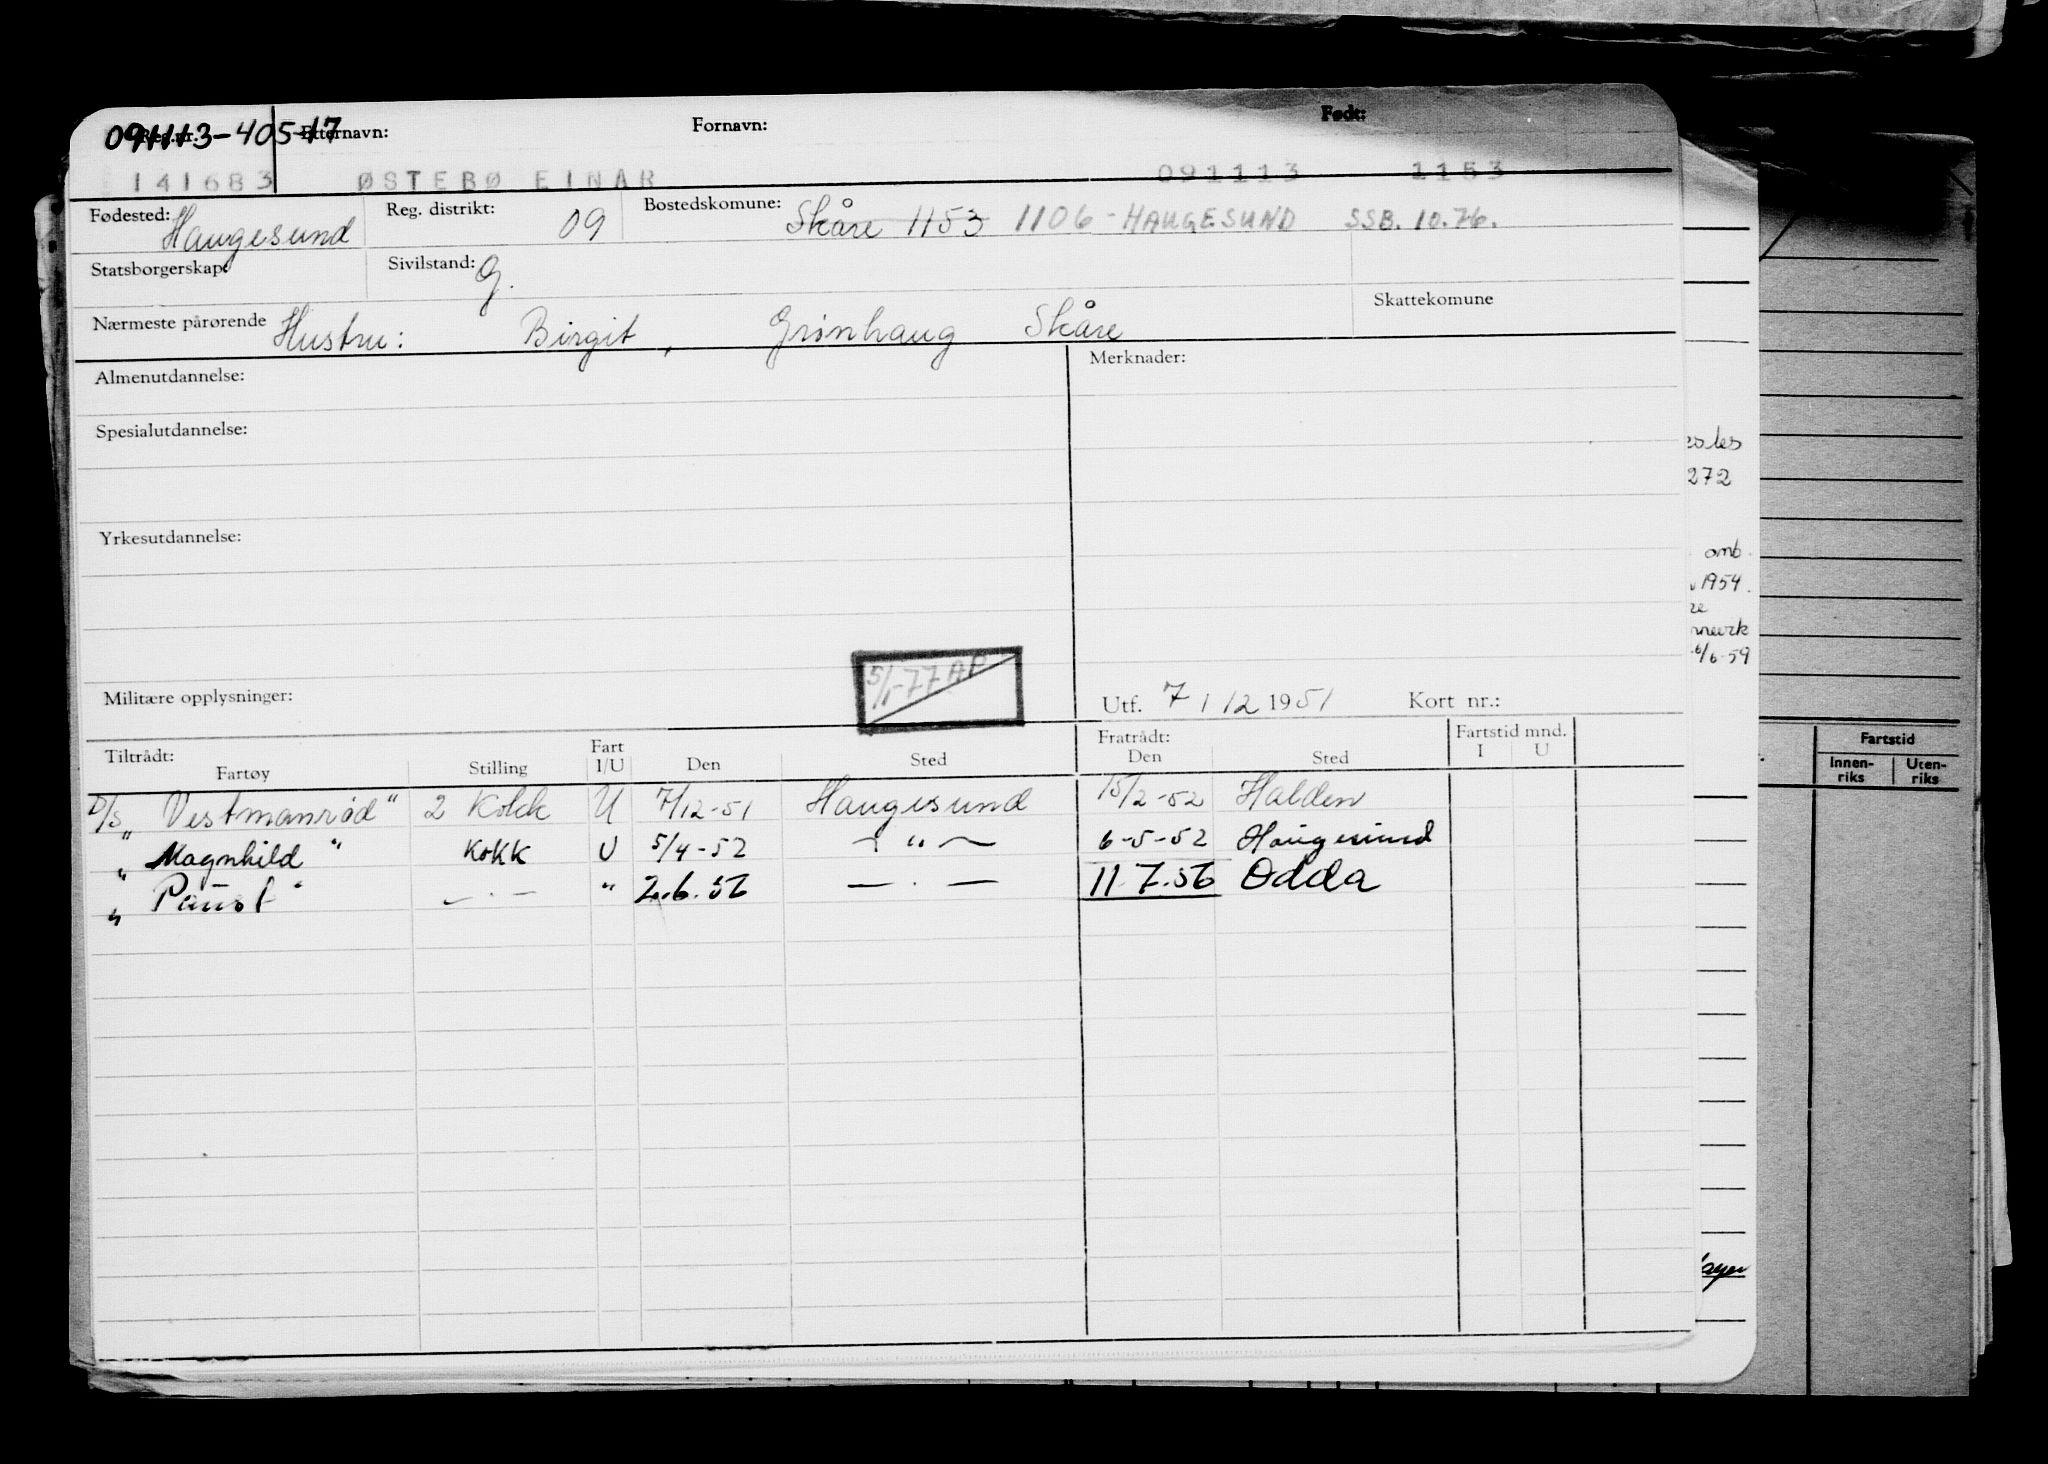 091113-405-17
Reg.nr. Etternavn: Fornavn: Født:
141683 ØSTEBØ EINAR 091113 1153
Fødested: Haugesund Reg. distrikt: 09 Bostedskomune: Skåre 1153 1106 - HAUGESUND SSB. 10.76.
Statsborgerskap: Sivilstand: G.
Nærmeste pårørende Hustru: Birgit, Grinhaug Skåre Skattekomune
Almenutdannelse: Merknader:
Spesialutdannelse:
Yrkesutdannelse:
5/1-77 AP
Militære opplysninger: Utf. 7/12 1951 Kort nr.:
Tiltrådt: Fart Fratrådt: Fartstid mnd.
Fartøy Stilling I/U Den Sted Den Sted I U
D/S „Vestmanrød" 2 Kokk U 7/12-51 Haugesund 15/2-52 Halden
„ Magnhild " KOKK U 5/4-52 — " — 6-5-52 Haugesund
„ Paust " — . — " 2.6.56 — . — 11.7.56 Odda
272
omb.
1954.
6/6-59
Fartstid
Innen-riks Uten-riks